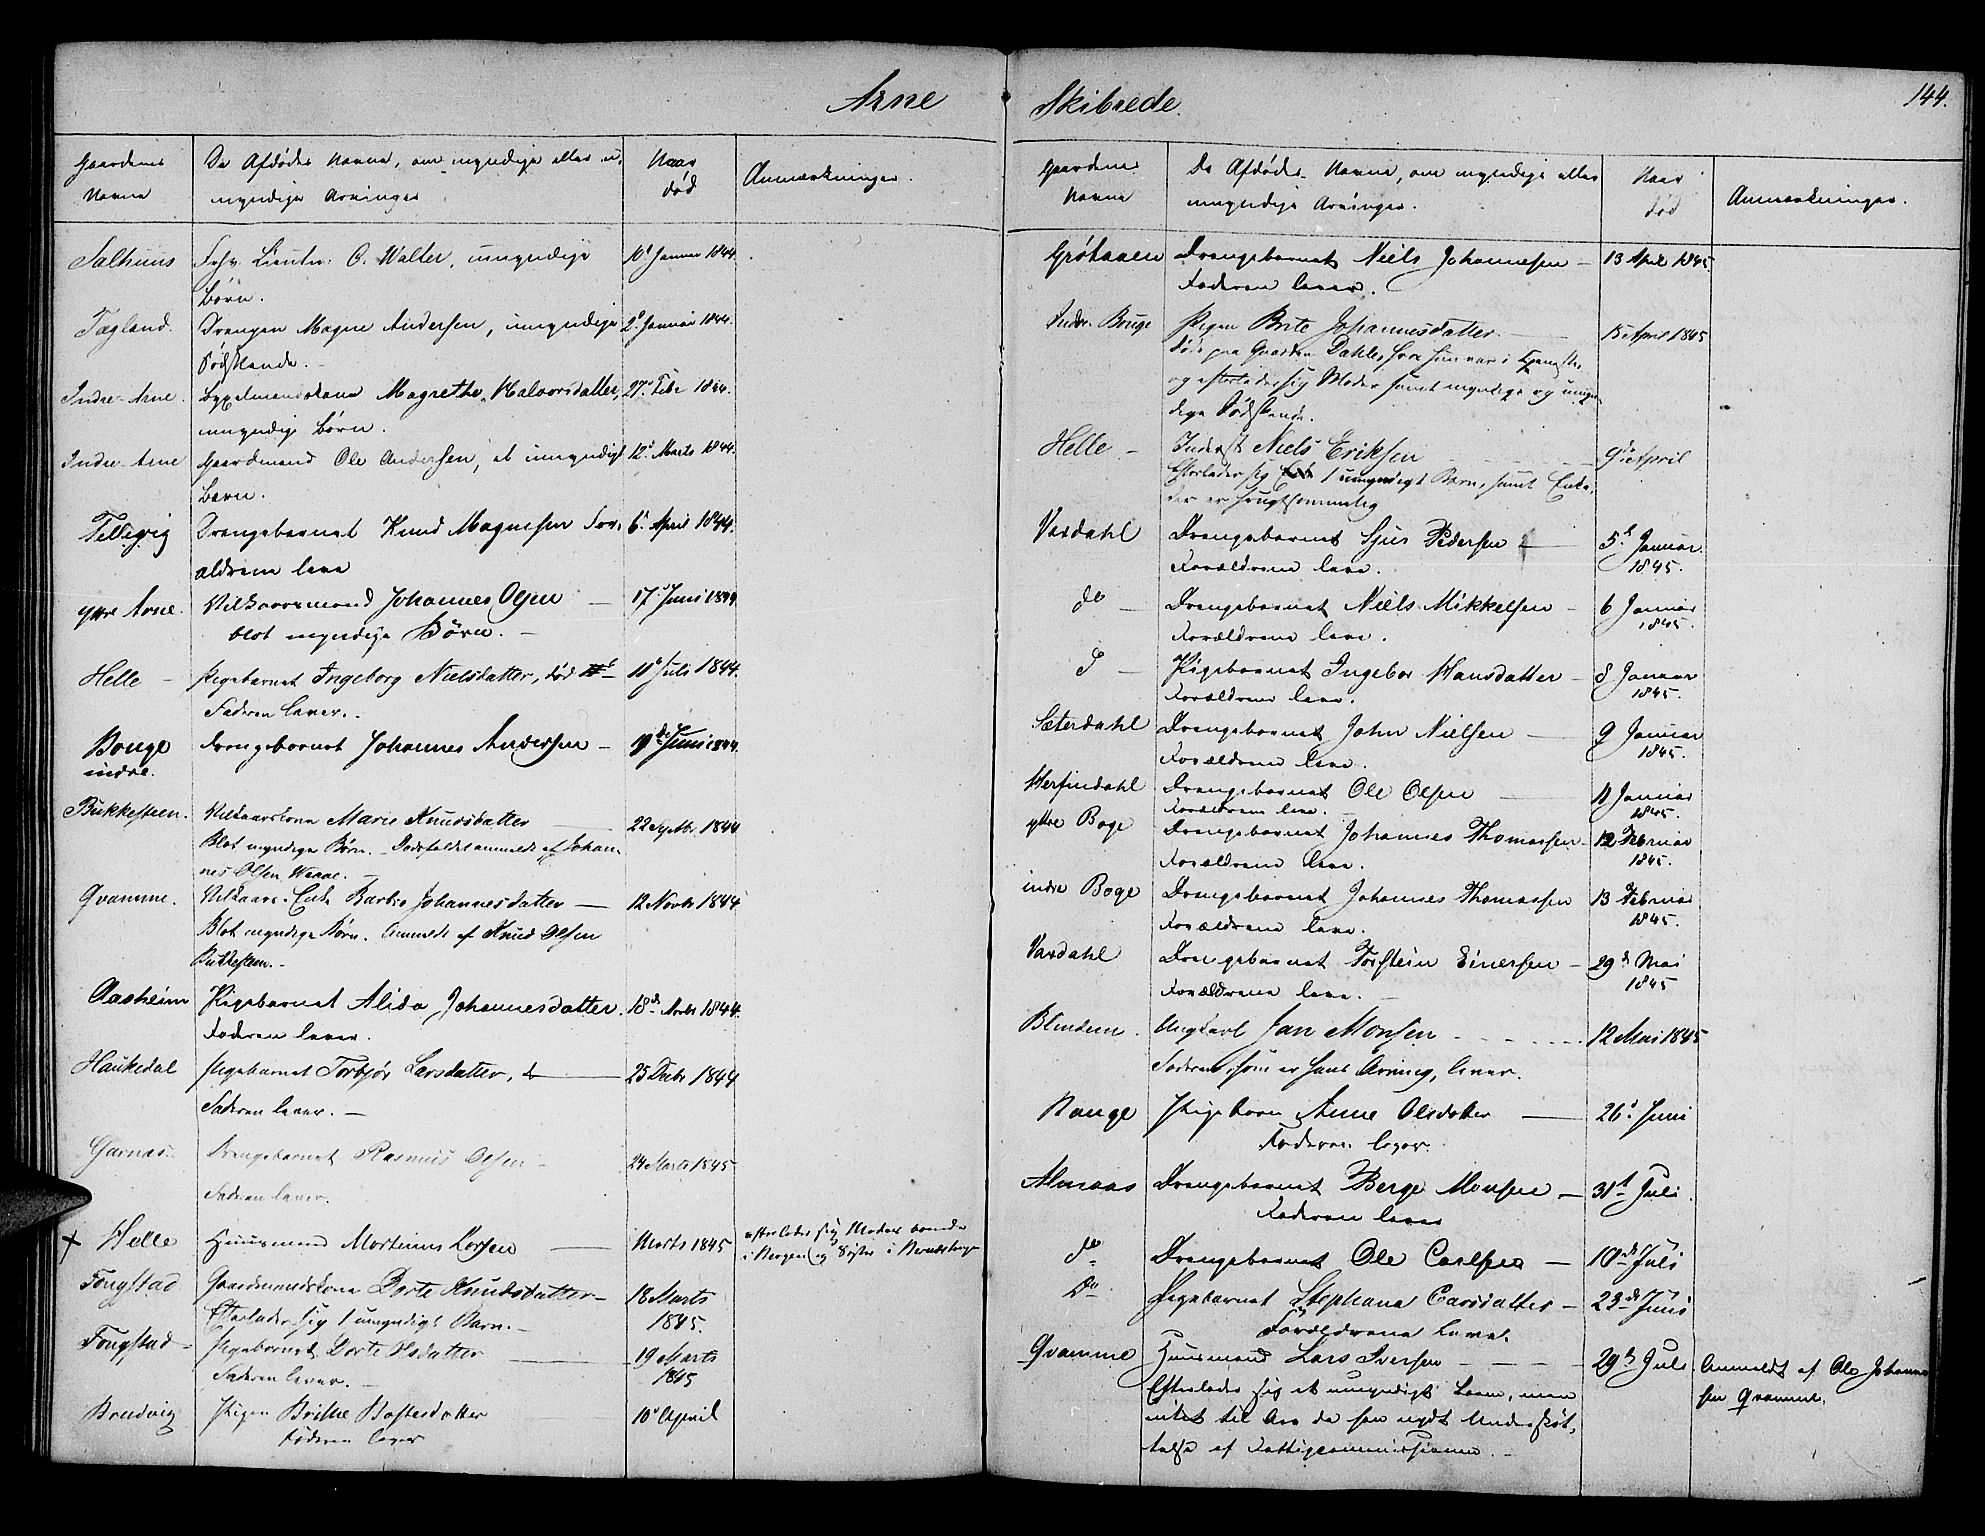 Arne
Gaardens Navne
De Afdødes Navne, om myndige eller u-
myndige Arvinger
Naar
død
Anmærkninger.
Salhuus
Lieutn. O. Walter, umyndige
Børn.
10d Januar 1844.
Tægland.
Drengen Magne Andersen, umyndige
Sødskende.
2d Januar 1844.
Indre-Arne.
Magrethe Halvorsdatter,
umyndige Børn.
27d Febr 1844.
Indre-Arne
Gaardmand Ole Andersen, et umyndigt
Barn.
12d Marts 1844.
Tellevig
Drengebarnet Knud Magnesen For-
ældrene leve
6d April 1844.
Yttre Arne.
Vilkaarsmand Johannes Olsen
blot myndige Børn.
17d Juni 1844
Helle
Pigebarnet Ingeborg Nielsdatter, død
Faderen lever.
11d Juli 1844.
Bouge
indre.
Drengebarnet Johannes Andersen
19de Juni 1844.
Bukkesteen.
Vilkaarskone Marie Knudsdatter
Blot myndige Børn. Dødsfaldet anmeldt af Johan-
nes Olsen
22 Septbr 1844
Qvamme.
Vilkaars-Enke Barbro Johannesdatter
Blot myndige Børn. Anmeldt af Knud Olsen
Bukkesteen.
12 Novbr 1844
Aasheim
Pigebarnet Alida Johannesdatter.
Faderen lever.
18de Novbr 1844.
Haukedal
Pigebarnet Torbjør Larsdatter,
Faderen lever.
25 Decbr 1844
Garnas.
Drengebarnet Rasmus Olsen
Faderen lever.
24 Marts 1845
+ Helle
Huusmand Martinus Larsen
Marts 1845
efterlader sig Moder boende
i Bergen og Søster i
Fongstad
Gaardmandskone Dorte Knudsdatter
Efterlader sig 1 umyndigt Barn.
18 Marts
1845.
Fongstad
Pigebarnet Dorte Olsdatter
Faderen lever.
19 Marts
1845
Brudvig
Pigen Brithe
Faderen lever
10d April
Skibrede.
144.
Gaardenes
Navne
De Afdødes Navne, om myndige eller
umyndige Arvinger.
Naar
død
Anmærkninger.
Grøtaaen
Drengebarnet Niels Johannesen
Faderen lever.
13 April 1845.
Indre Bouge
Pigen Brite Johannesdatter
døde paa Gaarden Dahle, hvor hun var i Tjeneste,
og efterlader sig Moder samt myndige og umyn-
dige Sødskende.
15 April 1845
Helle
Inderst Niels Eriksen
Efterlader sig 1 umyndigt Barn, samt Enke,
der er frugtsommelig
9de April
Vardahl
Drengebarnet Sjur Pedersen
Forældrene leve.
5d Januar
1845.
do
Drengebarnet Niels Mikkelsen
Forældrene leve.
6 Januar
1845.
do
Pigebarnet Ingebor Hansdatter
Forældrene leve.
8 Januar
1845.
Sæterdahl
Drengebarnet John Nielsen
Forældrene leve.
9 Januar
1845.
Herfindahl
Drengebarnet Ole Olsen
Forældrene leve.
11 Januar
1845.
yttre Boge
Drengebarnet Johannes Thomassen
Forældrene leve.
12 Februar
1845.
indre Boge
Drengebarnet Johannes Thomassen
Forældrene leve.
13 Februar
1845.
Vardahl
Drengebarnet Torstein Einersen
Forældrene leve.
29d Mai
1845
Blindem.
Ungkarl Jan Monsen
Faderen, som er hans Arving, lever.
12 Mai 1845
Bouge
Pigebarn Anne Olsdatter
Faderen lever.
26d Juni
Almaas
Drengebarnet Berge Monsen
Faderen lever
31d Juli.
do
Drengebarnet Ole Carlsen
10de Juli
Do
Pigebarnet Stephana Carsdatter
Forældrene lever.
23de Juni
Qvamme
Huusmand Lars Iversen
Efterlader sig et umyndigt Barn, men
intet til Arv da han nydt Understøt-
telse af Fattigcommissionen.
29d Juli
Anmeldt af Ole Johanne-
sen Qvamme.